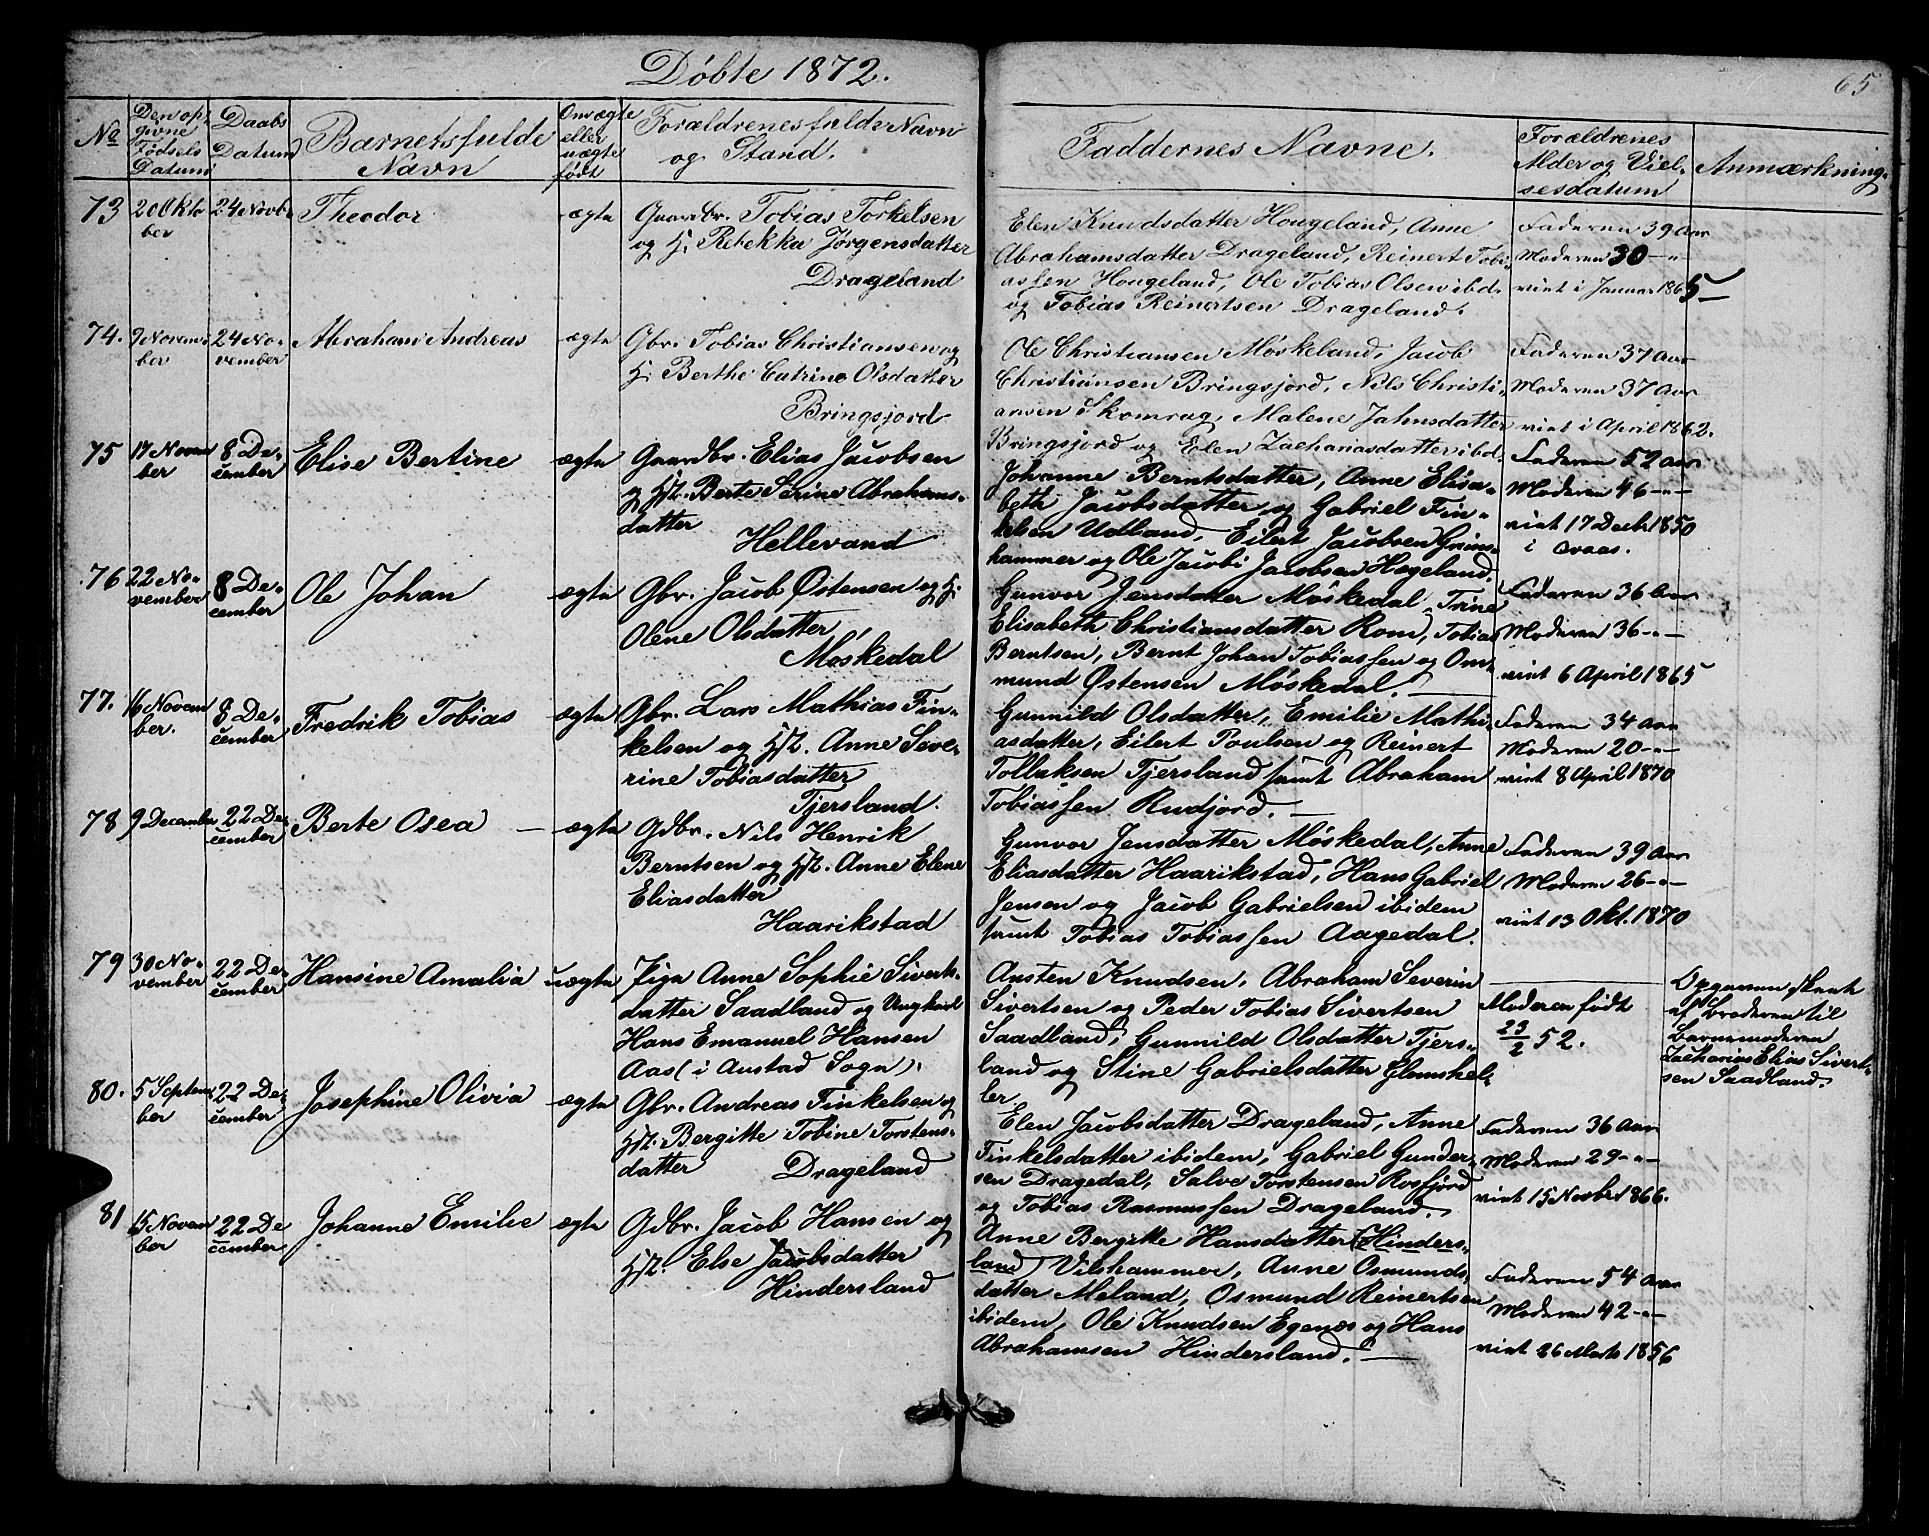 Døbte 1872.
65
No
Den op-
givne
Fødsels
Datum
Daabs
Datum
Barnets fulde
Navn
Om ægte
eller
uægte
født
Forældrenes fulde Navn
og Stand.
Faddernes Navne.
Forældrenes
Alder og Viel-
sesdatum
Anmærkning.
73
20 Okto
ber
24 Novb.
Theodor
ægte
Gaardbr. Tobias Torkelsen
og H. Rebekka Jørgensdatter
Drageland
Elen Knudsdatter Hougeland, Anne
Abrahamsdatter Drageland, Reinert Tobi-
assen Hougeland, Ole Tobias Olsen ibd.
og Tobias Reinertsen Drageland.
Faderen 39 Aar
Moderen 30 -"-
viet i Januar 1865
74.
9 Novem-
ber
24 No-
vember
Abraham Andreas
ægte
Gbr. Tobias Christiansen og
H. Berthe Catrine Olsdatter
Bringsjord
Ole Christiansen Møskeland, Jacob
Christiansen Bringsjord, Nils Christi-
ansen Skomrag, Malene Jahnsdatter
Bringsjord og Elen Zachariasdatter ibd.
Faderen 37 Aar
Moderen 37 Aar
viet i April 1862.
75
17 Novem
ber
8 De-
cember
Elise Bertine
ægte
Gaardbr. Elias Jacobsen
og Hst. Berte Serine Abrahams-
datter
Hellevand
Johanne Berntsdatter, Anne Elisa-
beth Jacobsdatter, og Gabriel Fin-
kelsen Udland, Eilert Jacobsen Grims-
hammer og Ole Jacobi Jacobsen Hægeland.
Faderen 52 aar
Moderen 46 -"-
viet 17 Decb. 1850
i Qvaas.
76
22 No-
vember
8 De-
cember
Ole Johan
ægte
Gbr. Jacob Østensen og H.
Olene Olsdatter,
Møskedal
Gunvor Jensdatter Møskedal, Trine
Elisabeth Christiansdatter Rom, Tobias
Berntsen, Bernt Johan Tobiassen og Om-
mund Østensen Møskedal.
Faderen 36 Aar
Moderen 36 -"-
viet 6 April 1865
77.
16 Novem
ber.
8 De-
cember
Fredrik Tobias
ægte
Gbr. Lars Mathias Fin-
kelsen og Hst. Anne Seve-
rine Tobiasdatter
Tjersland.
Gunnild Olsdatter, Emilie Mathi-
asdatter, Eilert Poulsen og Reinert
Tollaksen Tjersland samt Abraham
Tobiassen Rudjord.
Faderen 34 aar
Moderen 20 -"-
viet 8 April 1870
78
9 December
22 De-
cember
Berte Osea
ægte
Gdbr. Nils Henrik
Berntsen og Hst. Anne Elene
Eliasdatter
Haarikstad
Gunvor Jensdatter Møskedal, Anne
Eliasdatter Haarikstad, Hans Gabriel
Jensen og Jacob Gabrielsen ibidem
samt Tobias Tobiassen Aagedal.
Faderen 39 Aar
Moderen 26 -"-
viet 13 Okt. 1870
79
30 No-
vember
22 De-
cember
Hansine Amalia
uægte
Pige Anne Sophie Siverts-
datter Saadland og Ungkarl
Hans Emanuel Hansen
Aas (i Austad Sogn).
Austen Knudsen, Abraham Severin
Sivertsen og Peder Tobias Sivertsen
Saadland, Gunnild Olsdatter Tjers-
land og Stine Gabrielsdatter Glomhel-
ler.
Moderen født
23/2 52.
Opgaven skeet
af Broderen til
Barnemoderen
Zacharias Elias Sivert-
sen Saadland.
80.
5 Septem
ber
22 De-
cember
Josephine Olivia
ægte
Gbr. Andreas Finkelsen og
Hst. Bergitte Tobine Torstens-
datter
Drageland
Elen Jacobsdatter Drageland, Anne
Finkelsdatter ibidem, Gabriel Gunder-
sen Dragedal, Salve Torstensen Rosfjord
og Tobias Rasmussen Drageland.
Faderen 36 Aar
Moderen 29 -"-
viet 15 Novber 1866.
81
15 Novem
ber
22 De
cember
Johanne Emilie
ægte
Gdbr. Jacob Hansen og
Hst. Else Jacobsdatter
Hindersland
Anne Bergitte Hansdatter (Hinders-
land Vilshammer, Anne Osmunds-
datter Meland, Osmund Reinertsen
ibidem, Ole Knudsen Egenæs og Hans
Abrahamsen Hindersland.
Faderen 54 aar
Moderen 42 -"-
viet 26 Marts 1856